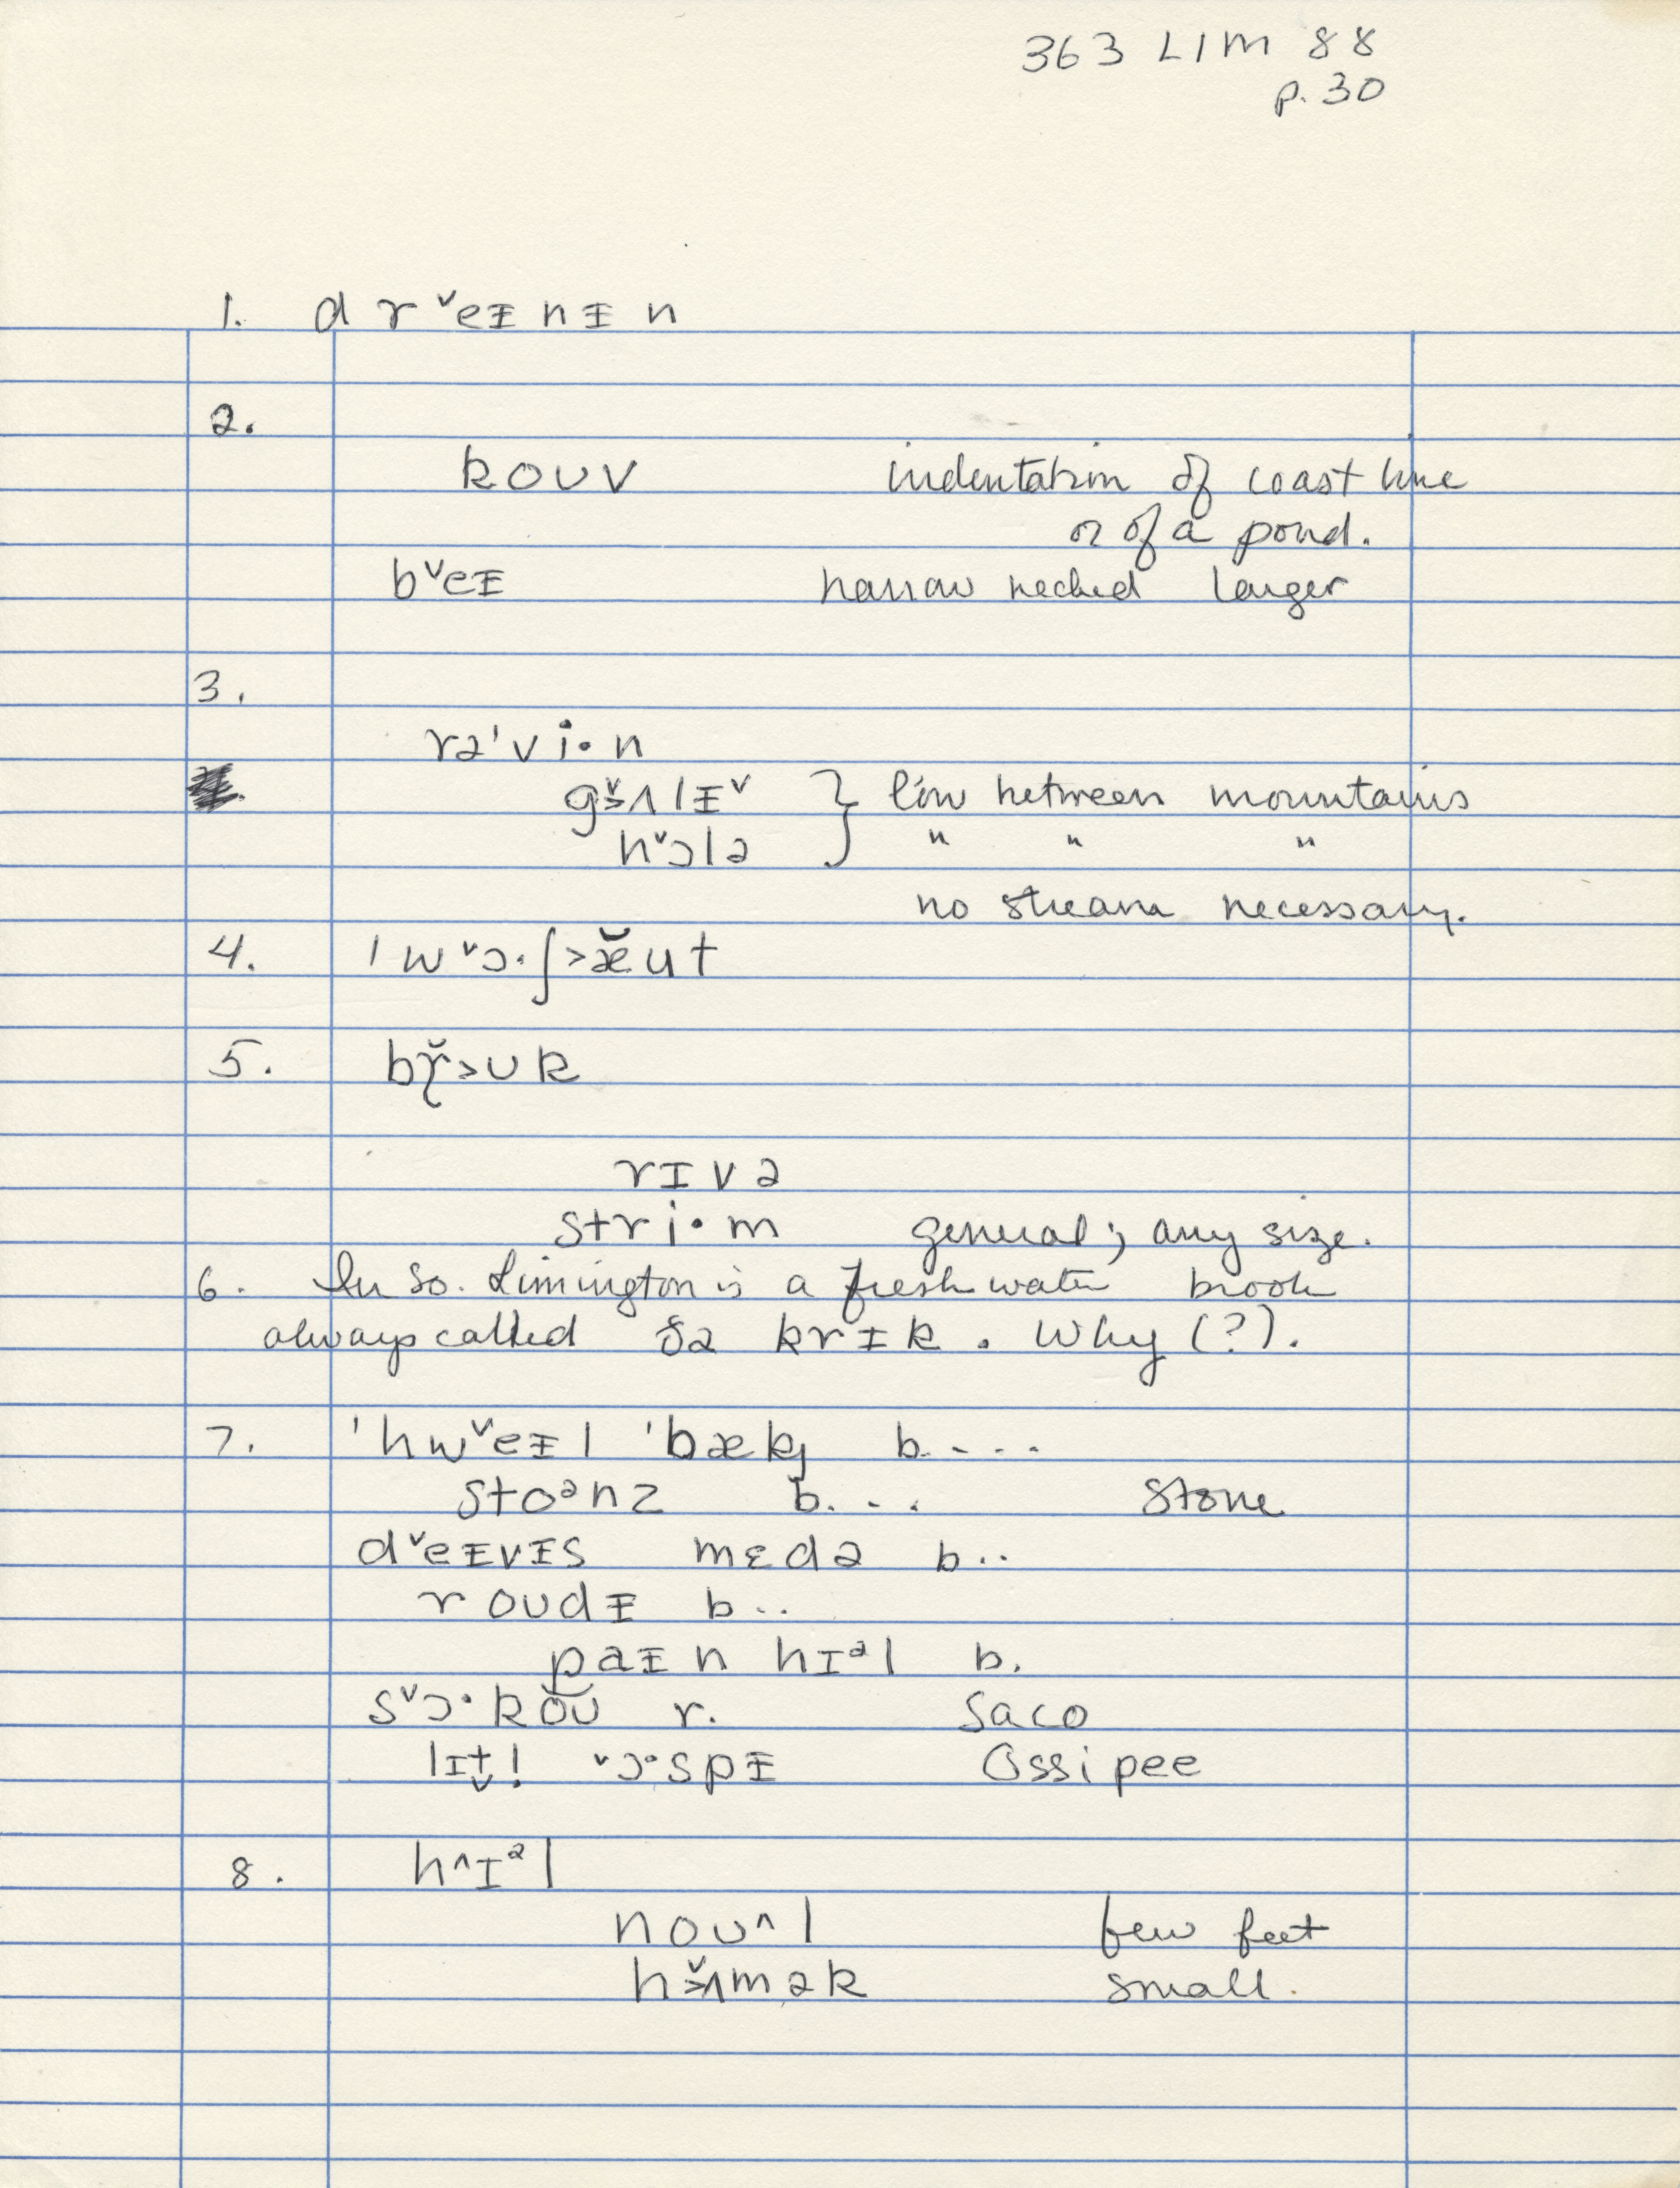 363 LIM 88
p. 30
1. d r ˅eᵻ n ᵻ n
2.
koʊv indentation of coast line
or of a pond.
b˅eᵻ narrow necked larger
3.
rəˈvi·n
gʌ̬˃lᵻ˅ } low between mountains
h˅ɔlə } " " "
no stream necessary.
4. ˈw˅ɔ·ʃ˃æ̆ut
5. bɽ̆˃ʊk
rɪvə
stri·m general; any size.
6. In So. Limington is a fresh water brook
always called ðə krɪk. Why (?).
7. ˈhw˅eᵻl ˈbækᶅ b....
stoᵊnz b... stone
d˅eɪvɪs mɛdə b..
roʊdᵻ b..
paɪn hɪᵊl b.
s˅ɔ·kŏʊ r. Saco
lɪt̬l̩ ˅ɔ·spᵻ Ossipee
8. h˄ɪᵊl
noʊ˄l few feet
hʌ̬˃mək small.